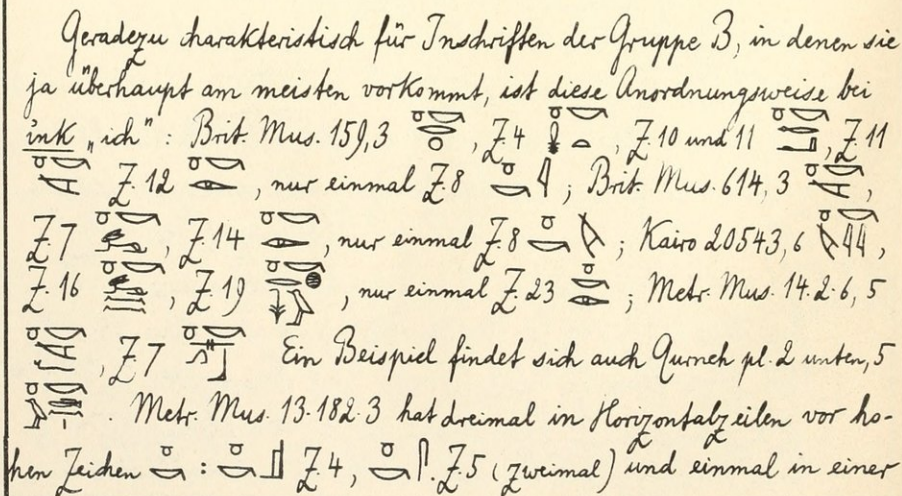 Geradezu charakteristisch für Inschriften der Gruppe B, in denen sie
ja überhaupt am meisten vorkommt, ist diese Anordnungsweise bei
ink „ich“ : Brit. Mus. 159,3 , Z.4 , Z.10 und 11 , Z.11
Z.12 , nur einmal Z.8 ; Brit. Mus. 614,3 ,
Z.7 , Z.14 , nur einmal Z.8 ; Kairo 20543,6 ,
Z.16 , Z.19 , nur einmal Z.23 ; Metr. Mus. 14.2.6, 5
, Z.7 Ein Beispiel findet sich auch Qurneh pl.2 unten,5
. Metr. Mus. 13.182.3 hat dreimal in Horizontalzeilen vor ho-
hen Zeichen : Z.4, . Z.5 (zweimal) und einmal in einer